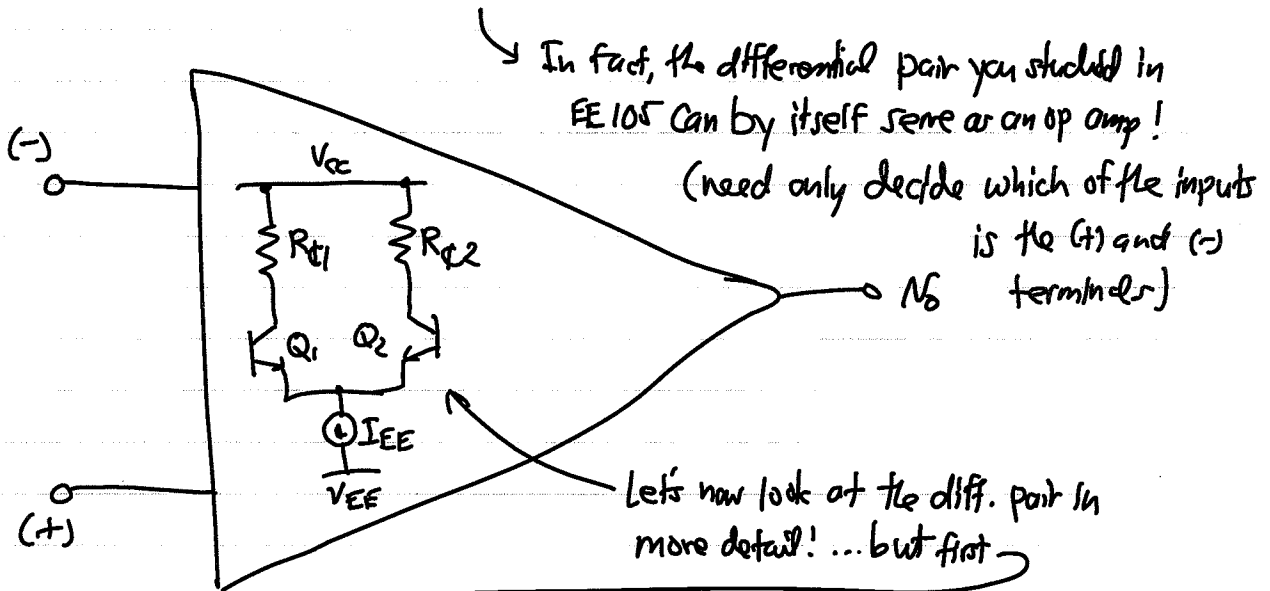 In fact, the differential pair you studied in
EE105 can by itself serve as an op amp!
(need only decide which of the inputs
is the (+) and (-)
terminals)
(-)
VCC
RC1
RC2
Q1
Q2
IEE
VEE
(+)
vo
Let's now look at the diff. pair in
more detail! ... but first